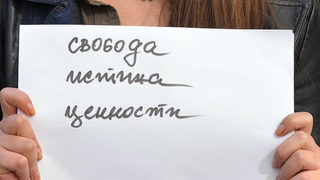 свобода
истина
ценности